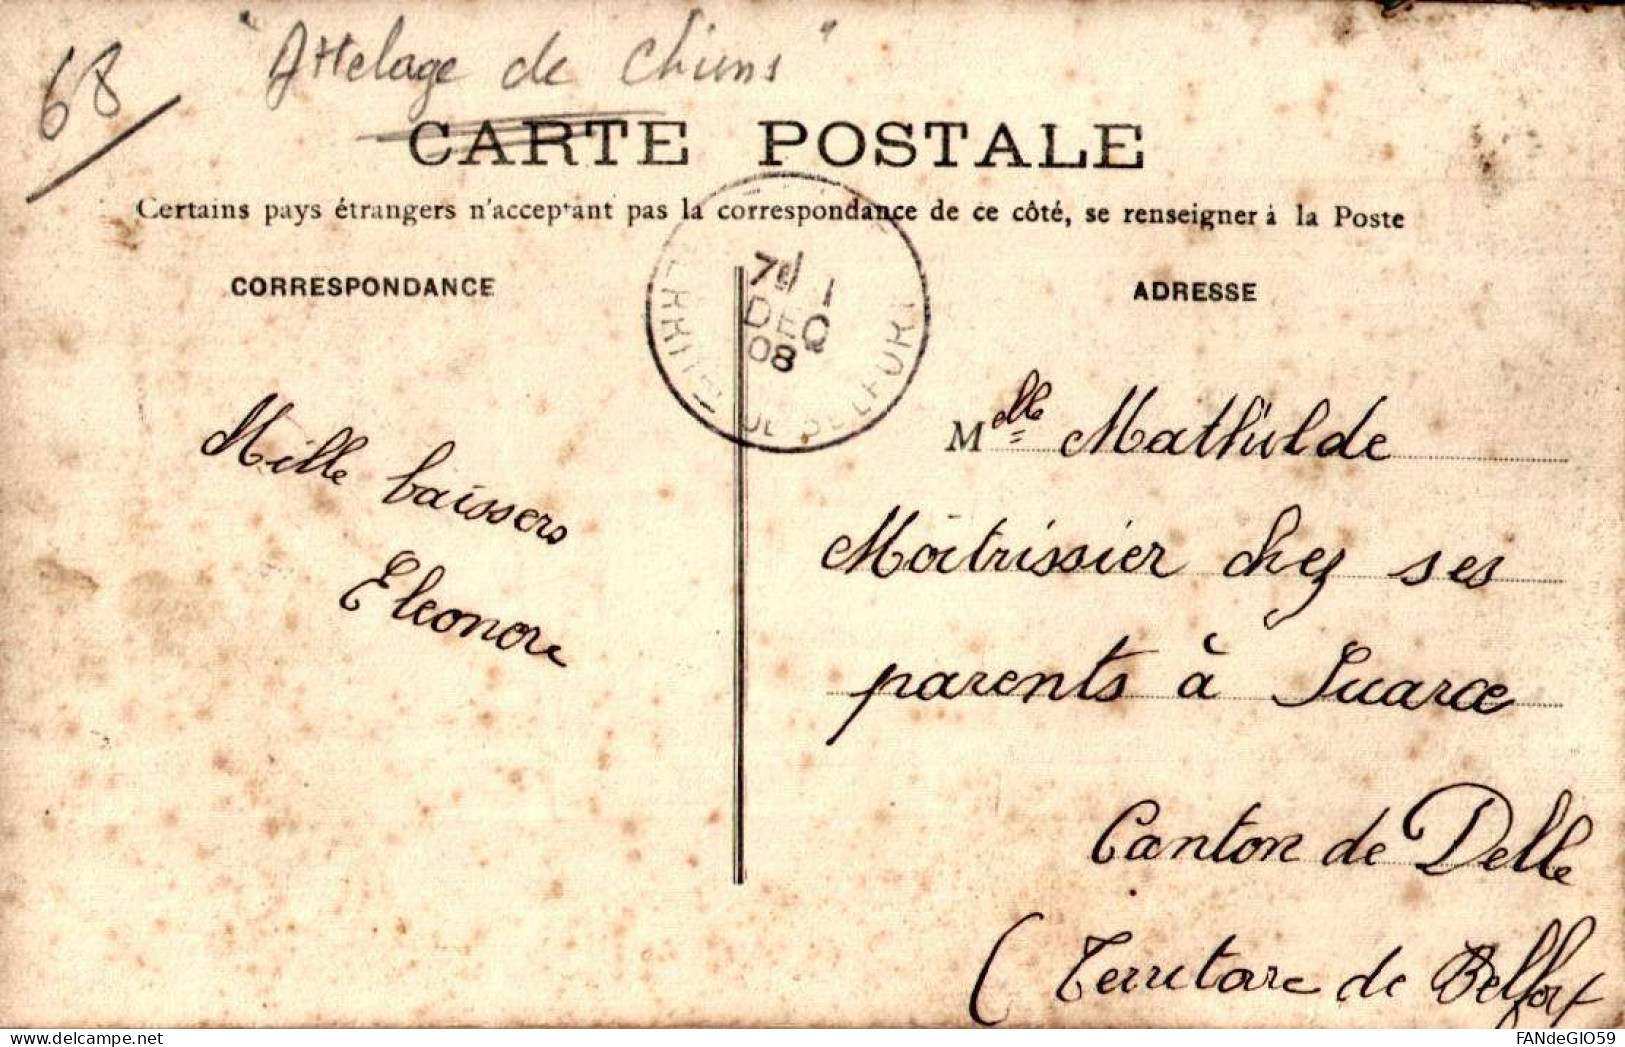 68
"Attelage de Chiens"
CARTE POSTALE
Certains pays étrangers n'acceptant pas la correspondance de ce côté, se renseigner à la Poste
CORRESPONDANCE
ADRESSE
1
DEC
08
DE BELFORT
Mille baissers
Eleonore
Melle Mathilde
Moitrissier chez ses
parents à Suarce
Canton de Delle
(Territoire de Belfort
FANdeGIO59